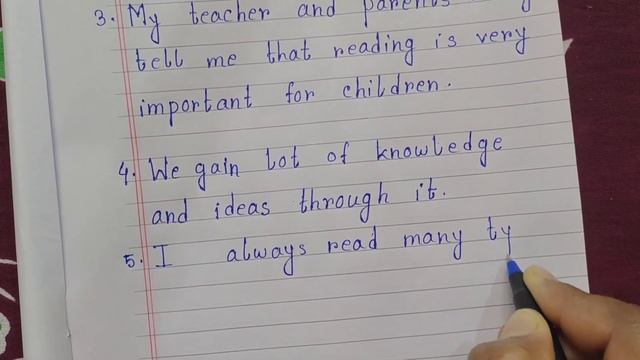 3. My teacher and parents
tell me that reading is very
important for children.
4. We gain lot of knowledge
and ideas through it.
5. I always read many ty